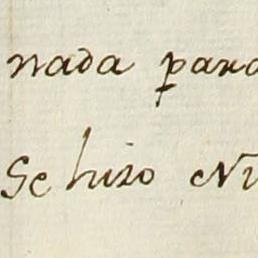 nada para
Se hizo Nu